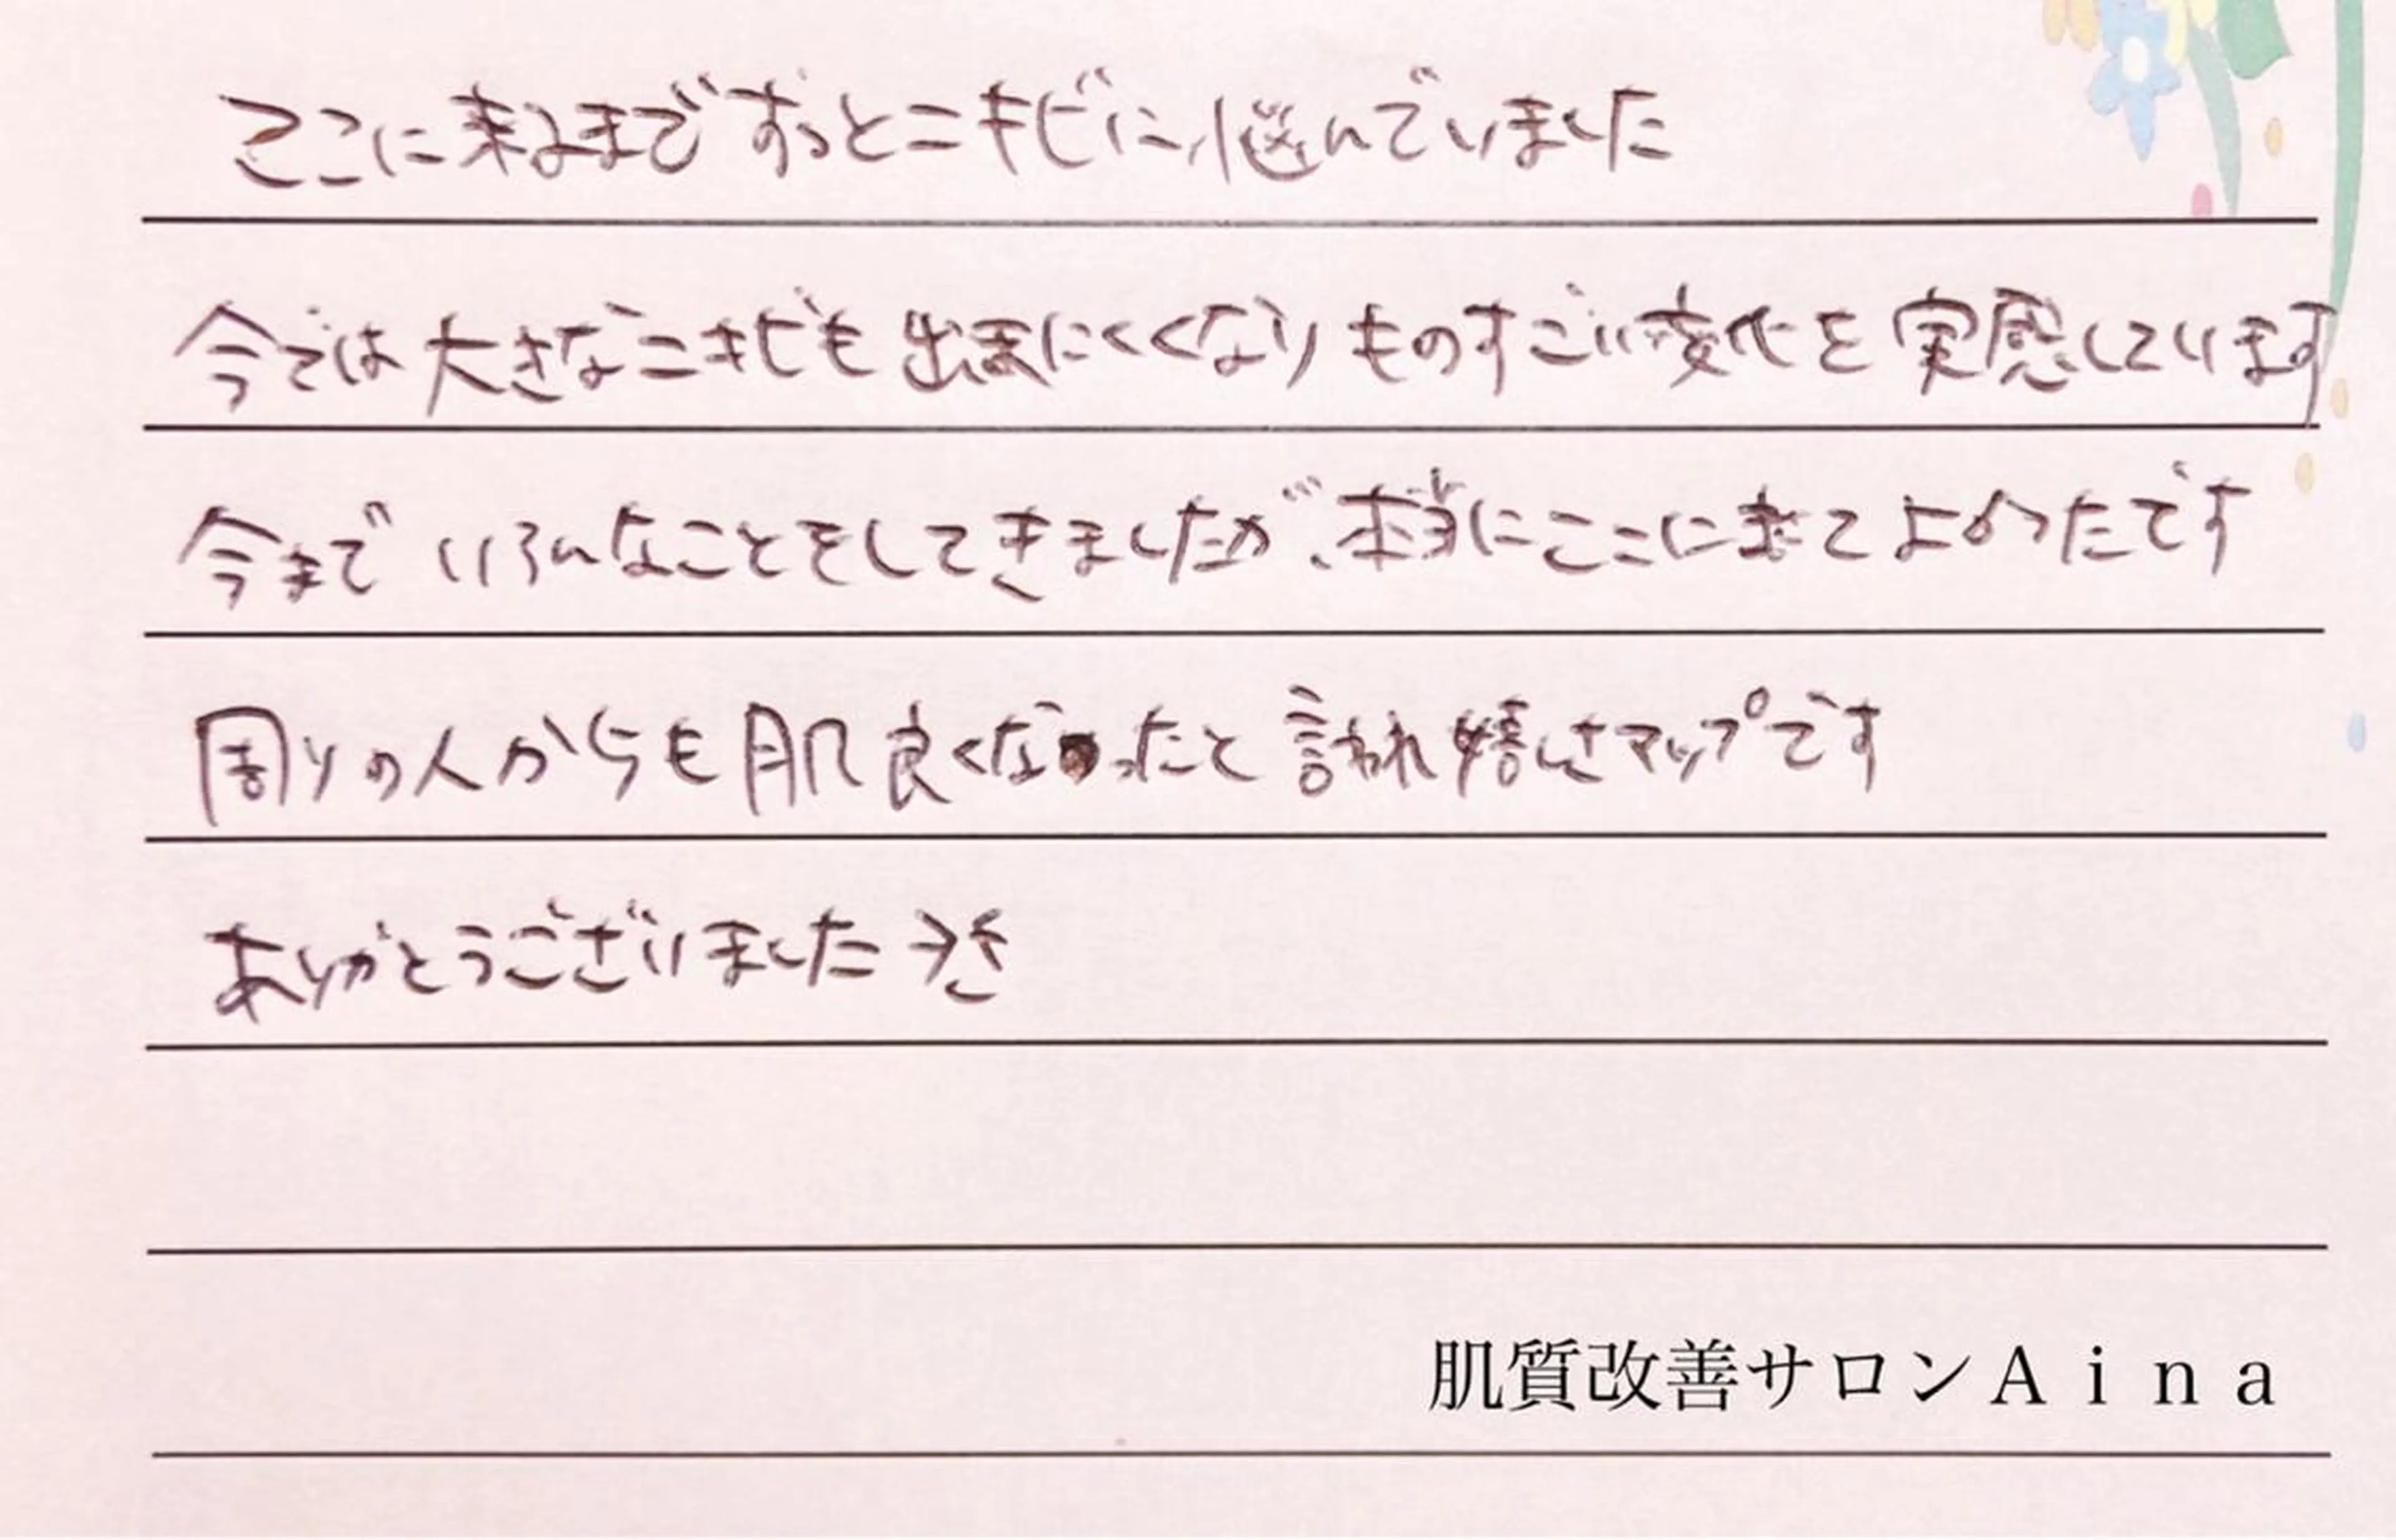 ここに来るまでずっとニキビに悩んでいました
今では大きなニキビも出来にくくなりものすごい変化を実感しています
今までいろんなことをしてきましたが、本当にここに来てよかったです
周りの人からも肌良くなったと言われ嬉しさマップです
ありがとうございました
肌質改善サロンAina